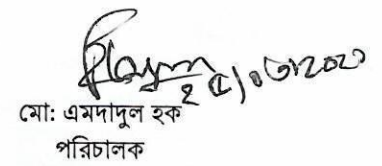 ২৫/০৩/২০২১
মো: এমদাদুল হক
পরিচালক